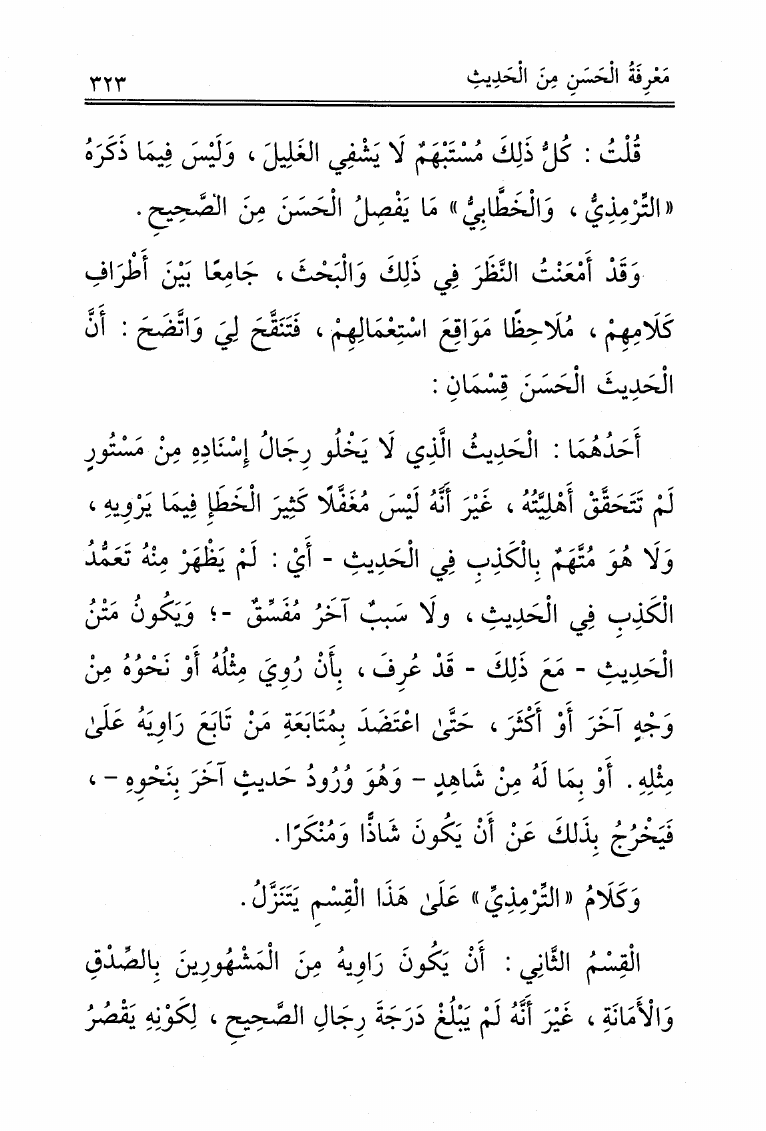 مَعْرِفَةُ الْحَسَنِ مِنَ الْحَدِيثِ
٣٢٣
قُلْتُ : كُلُّ ذَلِكَ مُسْتَبْهَمٌ لَا يَشْفِي الغَلِيلَ ، وَلَيْسَ فِيمَا ذَكَرَهُ
«التِّرْمِذِيُّ ، وَالْخَطَّابِيُّ» مَا يَفْصِلُ الْحَسَنَ مِنَ الصَّحِيحِ .
وَقَدْ أَمْعَنْتُ النَّظَرَ فِي ذَلِكَ وَالْبَحْثَ ، جَامِعًا بَيْنَ أَطْرَافِ
كَلَامِهِمْ ، مُلَاحِظًا مَوَاقِعَ اسْتِعْمَالِهِمْ ، فَتَنَقَّحَ لِيَ وَاتَّضَحَ : أَنَّ
الْحَدِيثَ الْحَسَنَ قِسْمَانِ :
أَحَدُهُمَا : الْحَدِيثُ الَّذِي لَا يَخْلُو رِجَالُ إِسْنَادِهِ مِنْ مَسْتُورٍ
لَمْ تَتَحَقَّقْ أَهْلِيَّتُهُ ، غَيْرَ أَنَّهُ لَيْسَ مُغَفَّلًا كَثِيرَ الْخَطَإِ فِيمَا يَرْوِيهِ ،
وَلَا هُوَ مُتَّهَمٌ بِالْكَذِبِ فِي الْحَدِيثِ - أَيْ : لَمْ يَظْهَرْ مِنْهُ تَعَمُّدُ
الْكَذِبِ فِي الْحَدِيثِ ، ولَا سَببٌ آخَرُ مُفَسِّقٌ -؛ وَيَكُونُ مَتْنُ
الْحَدِيثِ - مَعَ ذَلِكَ - قَدْ عُرِفَ ، بِأَنْ رُوِيَ مِثْلُهُ أَوْ نَحْوُهُ مِنْ
وَجْهٍ آخَرَ أَوْ أَكْثَرَ ، حَتَّىٰ اعْتَضَدَ بِمُتَابَعَةِ مَنْ تَابَعَ رَاوِيَهُ عَلَىٰ
مِثْلِهِ . أَوْ بِمَا لَهُ مِنْ شَاهِدٍ - وَهُوَ وُرُودُ حَديثٍ آخَرَ بِنَحْوِهِ - ،
فَيَخْرُجُ بِذَلكَ عَنْ أَنْ يَكُونَ شَاذًّا وَمُنْكَرًا .
وَكَلَامُ «التِّرْمِذِيِّ» عَلَىٰ هَذَا الْقِسْمِ يَتَنَزَّلُ .
الْقِسْمُ الثَّانِي : أَنْ يَكُونَ رَاوِيهُ مِنَ الْمَشْهُورِينَ بِالصِّدْقِ
وَالْأَمَانَةِ ، غَيْرَ أَنَّهُ لَمْ يَبْلُغْ دَرَجَةَ رِجَالِ الصَّحِيحِ ، لِكَوْنِهِ يَقْصُرُ